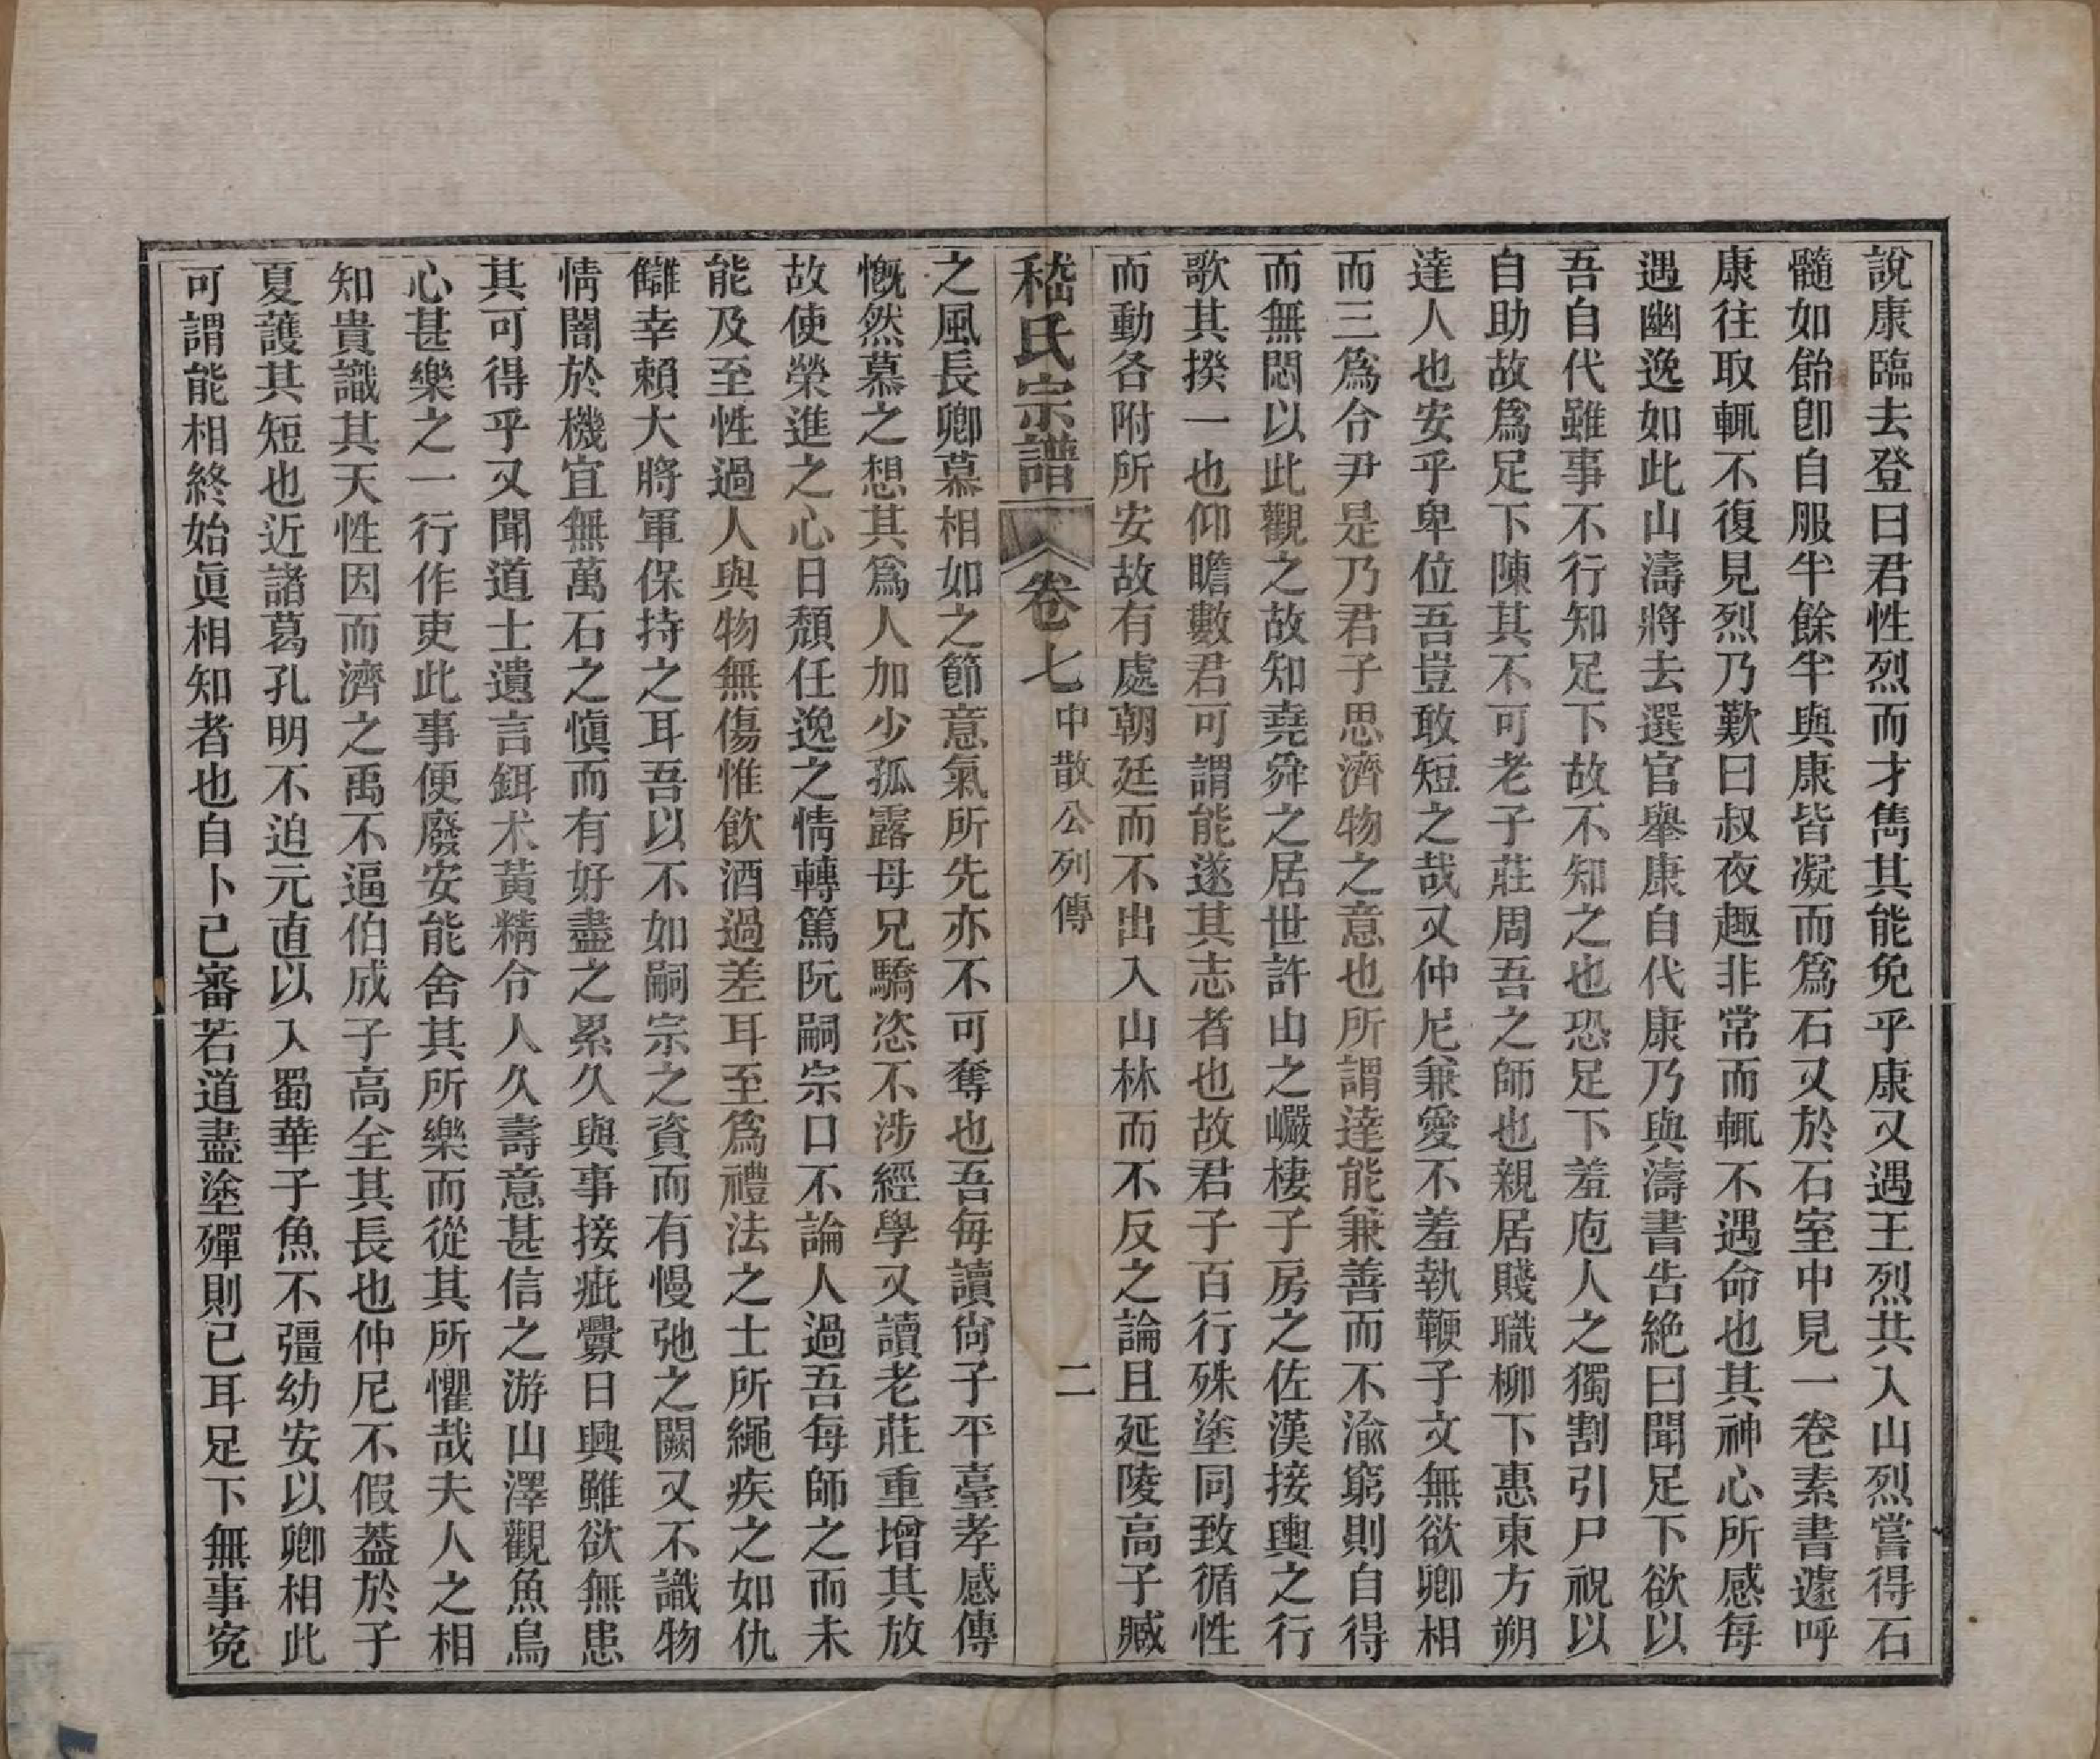 說康臨去登曰君性烈而才雋其能免乎康又遇王烈共入山烈嘗得石
髓如飴卽自服半餘半與康皆凝而爲石又於石室中見一卷素書遽呼
康往取輒不復見烈乃歎曰叔夜趣非常而輒不遇命也其神心所感每
遇幽逸如此山濤將去選官舉康自代康乃與濤書告絕曰聞足下欲以
吾自代雖事不行知足下故不知之也恐足下羞庖人之獨割引尸祝以
自助故爲足下陳其不可老子莊周吾之師也親居賤職柳下惠東方朔
達人也安乎卑位吾豈敢短之哉又仲尼兼愛不羞執鞭子文無欲卿相
而三爲令尹是乃君子思濟物之意也所謂達能兼善而不渝窮則自得
而無悶以此觀之故知堯舜之居世許由之巖棲子房之佐漢接輿之行
歌其揆一也仰瞻數君可謂能遂其志者也故君子百行殊塗同致循性
而動各附所安故有處朝廷而不出入山林而不反之論且延陵高子臧
嵇氏宗譜 卷七 中散公列傳 二
之風長卿慕相如之節意氣所先亦不可奪也吾每讀尙子平臺孝感傳
慨然慕之想其爲人加少孤露母兄驕恣不涉經學又讀老莊重增其放
故使榮進之心日頹任逸之情轉篤阮嗣宗口不論人過吾每師之而未
能及至性過人與物無傷惟飮酒過差耳至爲禮法之士所繩疾之如仇
讎幸賴大將軍保持之耳吾以不如嗣宗之資而有慢弛之闕又不識物
情闇於機宜無萬石之愼而有好盡之累久與事接疵釁日興雖欲無患
其可得乎又聞道士遺言餌朮黃精令人久壽意甚信之游山澤觀魚鳥
心甚樂之一行作吏此事便廢安能舍其所樂而從其所懼哉夫人之相
知貴識其天性因而濟之禹不逼伯成子高全其長也仲尼不假葢於子
夏護其短也近諸葛孔明不迫元直以入蜀華子魚不彊幼安以卿相此
可謂能相終始眞相知者也自卜已審若道盡塗殫則已耳足下無事寃